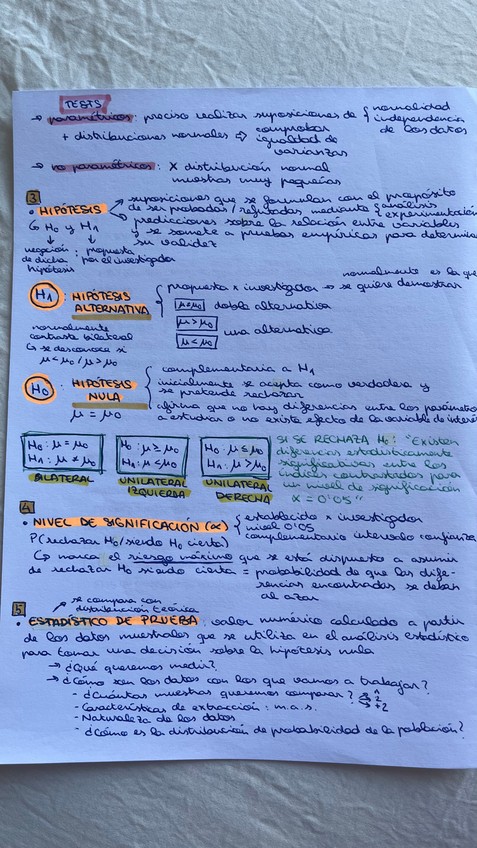 TESTS
→ paramétricos: preciso realizar suposiciones de { normalidad
independencia
de los datos
+ distribuciones normales ⇨ comprobar
igualdad de
varianzas
→ no paramétricos: x distribución normal
muestras muy pequeñas
3
• HIPÓTESIS → suposiciones que se formulan con el propósito
de ser probadas / refutadas mediante { análisis
experimentación
→ predicciones sobre la relación entre variables
y se somete a pruebas empíricas para determinar
su validez
↳ H0 y H1
↓ ↓
negación propuesta
de dicha por el investigador
hipótesis
H1 : HIPÓTESIS
ALTERNATIVA
normalmente es la que
propuesta x investigador → se quiere demostrar
μ≠μ0 doble alternativa
μ>μ0
una alternativa
μ<μ0
normalmente
contraste bilateral
↳ se desconoce si
μ<μ0 / μ>μ0
H0 : HIPÓTESIS
NULA
μ = μ0
complementaria a H1
inicialmente se acepta como verdadera y
se pretende rechazar
afirma que no hay diferencias entre los parámetros
a estudiar o no existe efecto de la variable de interés
H0: μ = μ0
H1: μ ≠ μ0
BILATERAL
H0: μ ≥ μ0
H1: μ < μ0
UNILATERAL
IZQUIERDA
H0: μ ≤ μ0
H1: μ > μ0
UNILATERAL
DERECHA
SI SE RECHAZA H0: "Existen
diferencias estadísticamente
significativas entre los
índices contrastados para
un nivel de significación
α = 0'05"
4
• NIVEL DE SIGNIFICACIÓN (α) { establecido x investigador
nivel 0'05
complementario intervalo confianza
P(rechazar H0 / siendo H0 cierta)
↳ marca el riesgo máximo que se está dispuesto a asumir
de rechazar H0 siendo cierta = probabilidad de que las dife-
rencias encontradas se deban
al azar
5
se compara con
distribución teórica
• ESTADÍSTICO DE PRUEBA: valor numérico calculado a partir
de los datos muestrales que se utiliza en el análisis estadístico
para tomar una decisión sobre la hipótesis nula
→ ¿Qué queremos medir?
→ ¿Cómo son los datos con los que vamos a trabajar?
- ¿Cuántas muestras queremos comparar? → 1
→ 2
→ +2
- Características de extracción: m.a.s.
- Naturaleza de los datos
- ¿Cómo es la distribución de probabilidad de la población?